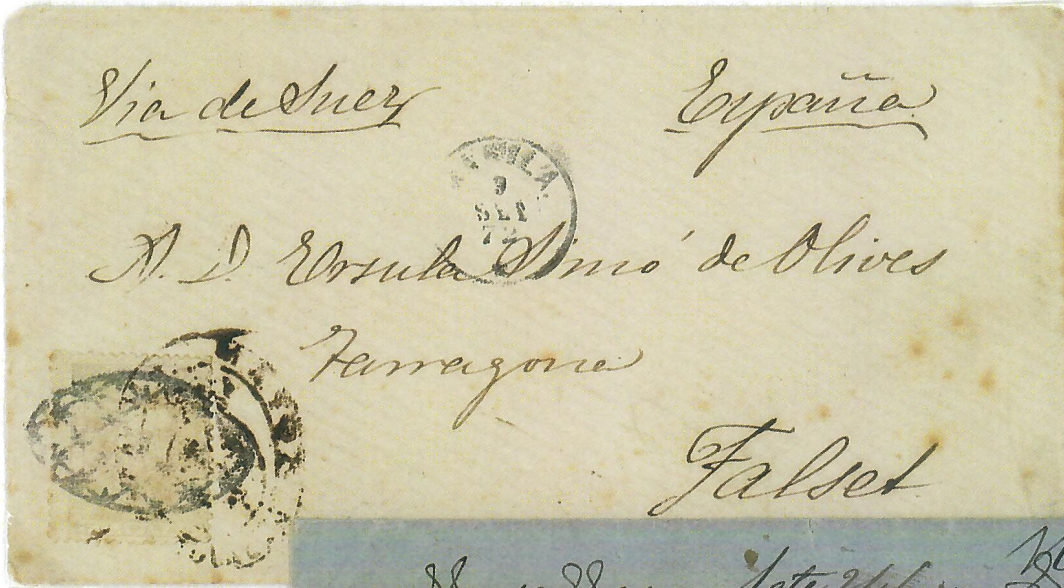 Via de Suez España
MANILA.
9
SET
72
A. D. Ersula Simó de Olives
Tarragona
Falset